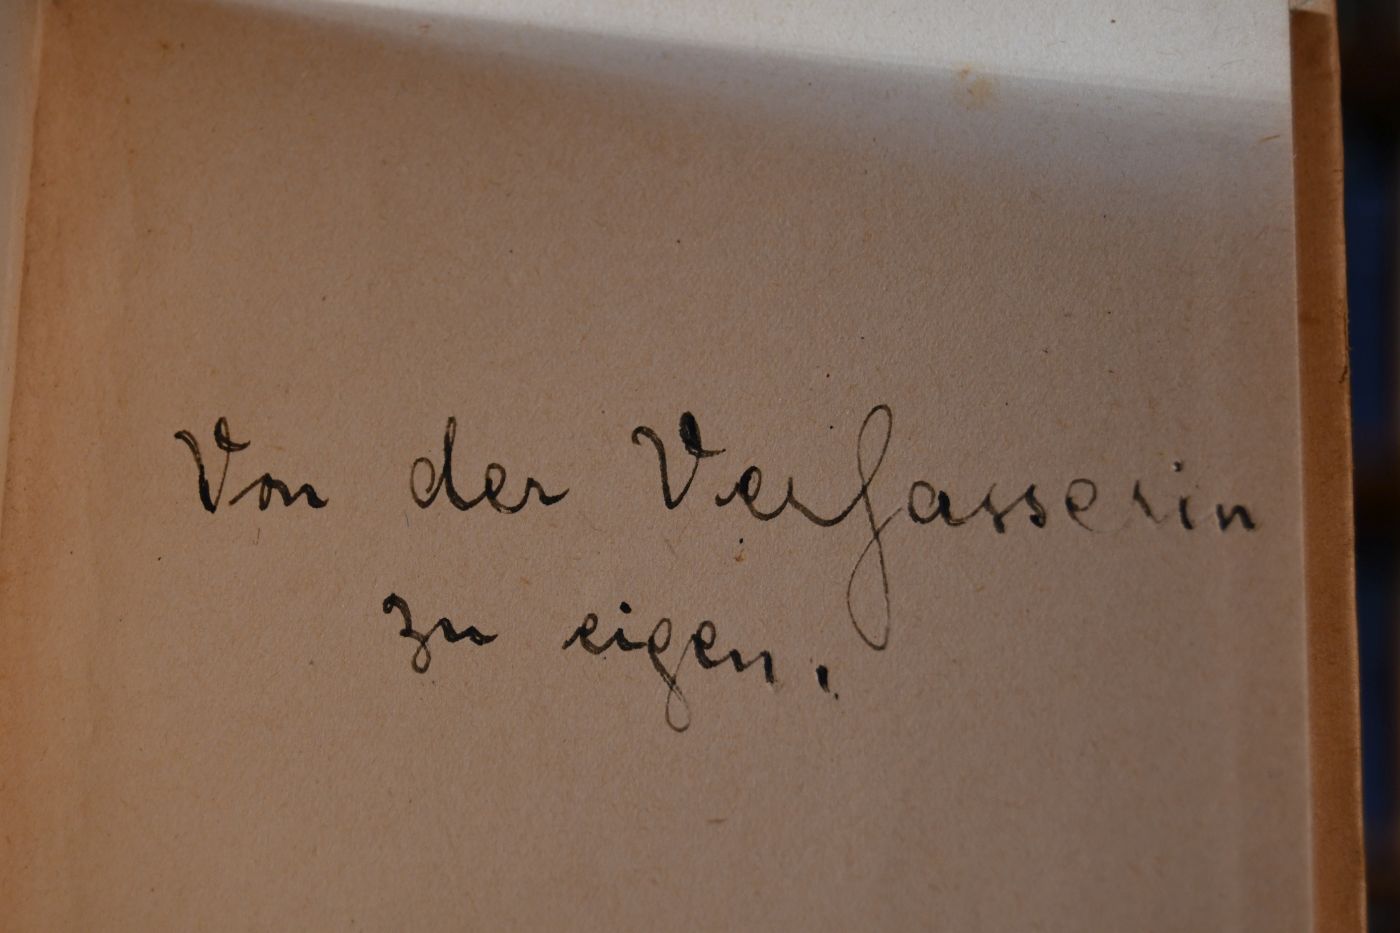 Von der Verfasserin
zu eigen.